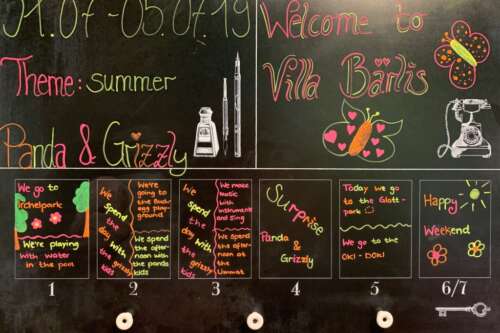 01.07-05.07.19
Theme: summer
Panda & Grizzly
Welcome to
Villa Bärlis
We go to
Irchelpark
We're playing
with water
in the pool
1
We
spend
the
day with
the grizzly
kids
We're
going to
the Buch-
egg play-
ground
We spend
the after-
noon with
the panda
kids
2
We
spend
the
day with
the grizzly
kids
We make
music
with
instruments
and sing
We spend
the after-
noon at
the
Limmat
3
Surprise
Panda
&
Grizzly
4
Today we go
to the Glatt-
park
We go to the
Oki - Doki
5
Happy
Weekend
6/7